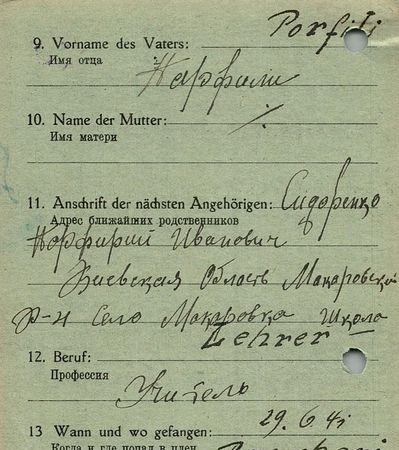 Porfiri
9. Vorname des Vaters:
Имя отца
Порфири
10. Name der Mutter: ⁒
Имя матери
11. Anschrift der nächsten Angehörigen: Сидоренко
Адрес ближайших родственников
Порфирий Иванович
Киевская Область Макаровский
Р-н Село Макаровка Школа
Lehrer
12. Beruf:
Профессия
Учитель
29.6.41
13 Wann und wo gefangen:
Когда и где попал в плен